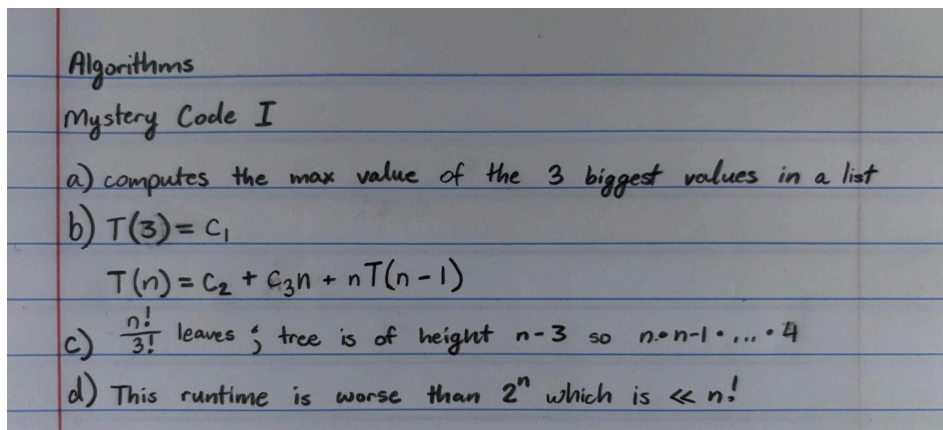 Algorithms
Mystery Code I
a) computes the max value of the 3 biggest values in a list
b) T(3) = C₁
T(n) = C₂ + C₃n + nT(n-1)
c) n!/3! leaves ; tree is of height n-3 so n·n-1·...·4
d) This runtime is worse than 2ⁿ which is << n!